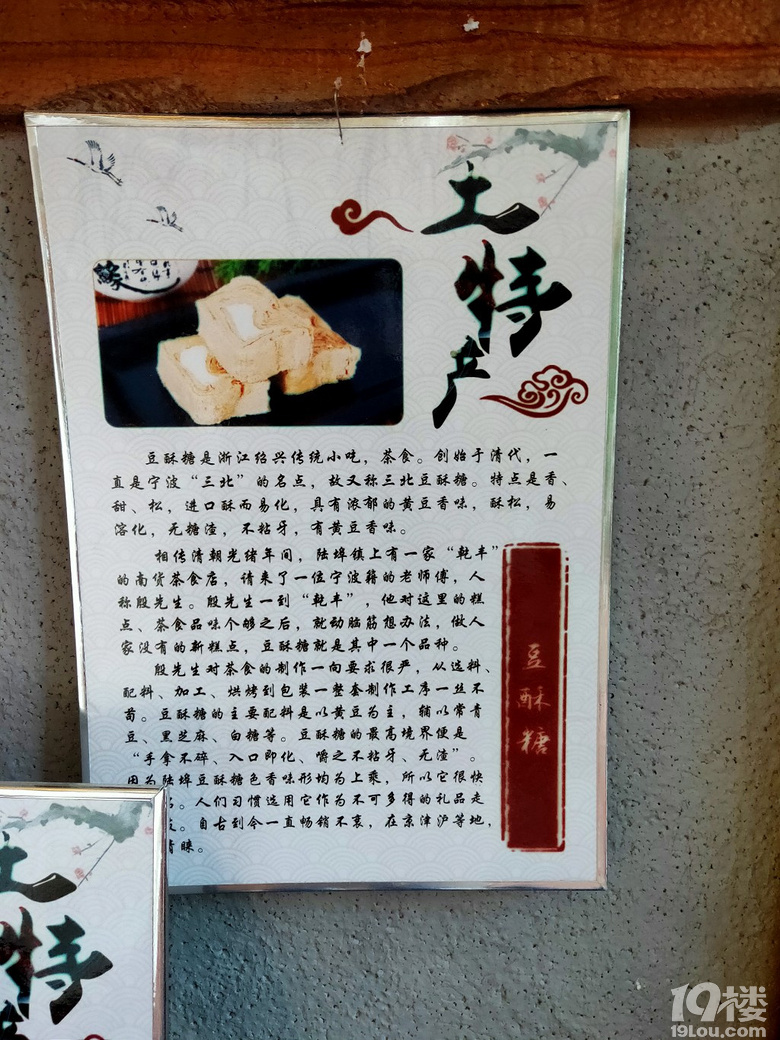 土特产
豆酥糖是浙江绍兴传统小吃，茶食。创始于清代，一
直是宁波“三北”的名点，故又称三北豆酥糖。特点是香、
甜、松，进口酥而易化，具有浓郁的黄豆香味，酥松，易
溶化，无糖渣，不粘牙，有黄豆香味。
相传清朝光绪年间，陆埠镇上有一家“乾丰”
的南货茶食店，请来了一位宁波籍的老师傅，人
称殷先生。殷先生一到“乾丰”，他对这里的糕
点、茶食品味个够之后，就动脑筋想办法，做人
家没有的新糕点，豆酥糖就是其中一个品种。
殷先生对茶食的制作一向要求很严，从选料、
配料、加工、烘烤到包装一整套制作工序一丝不
苟。豆酥糖的主要配料是以黄豆为主，辅以常青
豆、黑芝麻、白糖等。豆酥糖的最高境界便是
“手拿不碎、入口即化、嚼之不粘牙、无渣”。
因为陆埠豆酥糖色香味形均为上乘，所以它很快
名。人们习惯选用它作为不可多得的礼品走
。自古到今一直畅销不衰，在京津沪等地，
睐。
豆酥糖
土特
19楼
19Lou.com